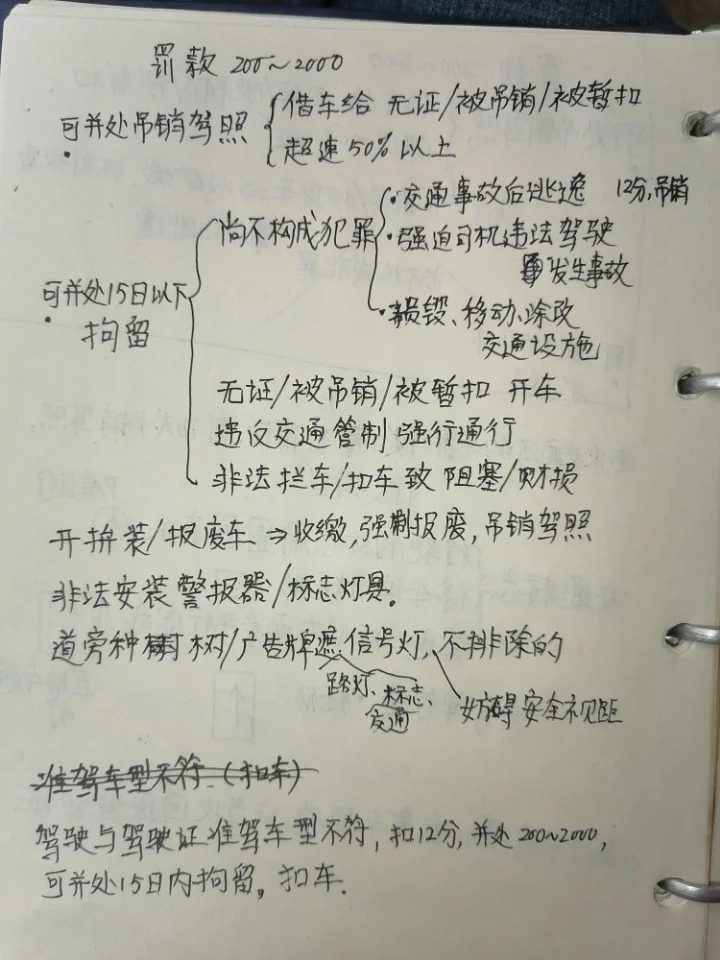 罚款 200~2000
可并处吊销驾照
借车给 无证/被吊销/被暂扣
超速50%以上
可并处15日以下
拘留
尚不构成犯罪
·交通事故后逃逸 12分,吊销
·强迫司机违法驾驶
发生事故
·损毁、移动、涂改
交通设施
无证/被吊销/被暂扣 开车
违反交通管制 强行通行
非法拦车/扣车致 阻塞/财损
开拼装/报废车 ⇒收缴,强制报废,吊销驾照
非法安装警报器/标志灯具。
道旁种树/广告牌遮信号灯,不排除的
路灯、标志、
交通
妨碍安全视距
准驾车型不符 (扣车)
驾驶与驾驶证准驾车型不符, 扣12分, 并处200~2000,
可并处15日内拘留, 扣车.